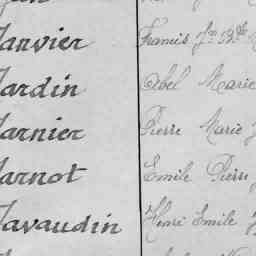 Janvier Francis Jn Bte
Jardin Abel Marie
Jarnier Pierre Marie J
Jarnot Emile Pierre
Javaudin Henri Emile